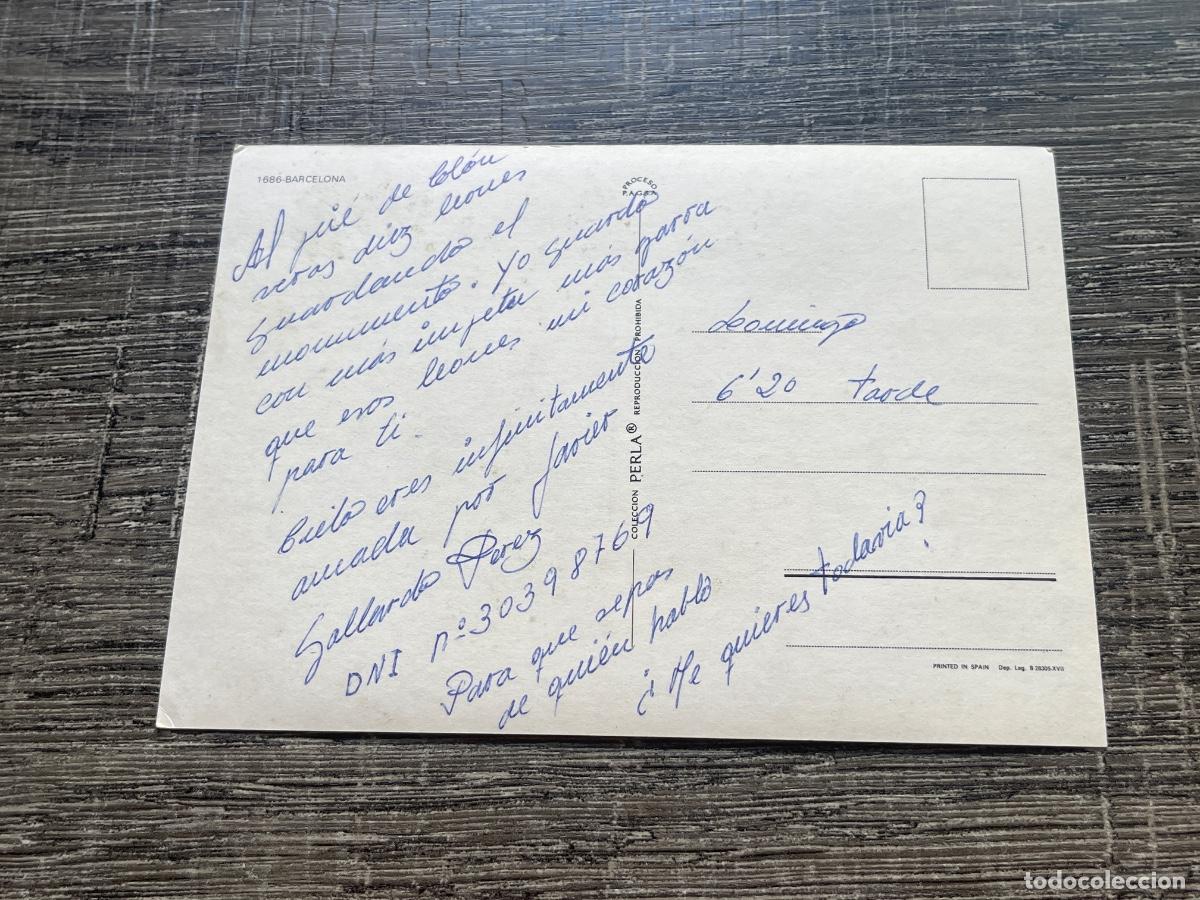 1686-BARCELONA
Al pié de Colón
veras diez leones
guardando el
monumento. Yo guardo
con más impetu más garra
que esos leones mi corazón
para ti.
Cielo eres infinitamente
amada por Javier
Gallardo Perez
DNI nº 30398769
Para que sepas
de quién hablo
¿Me quieres todavia?
PROCESO
COLECCION PERLA® REPRODUCCION PROHIBIDA
Domingo
6'20 tarde
PRINTED IN SPAIN Dep. Leg. B 28305-XVII
todocoleccion